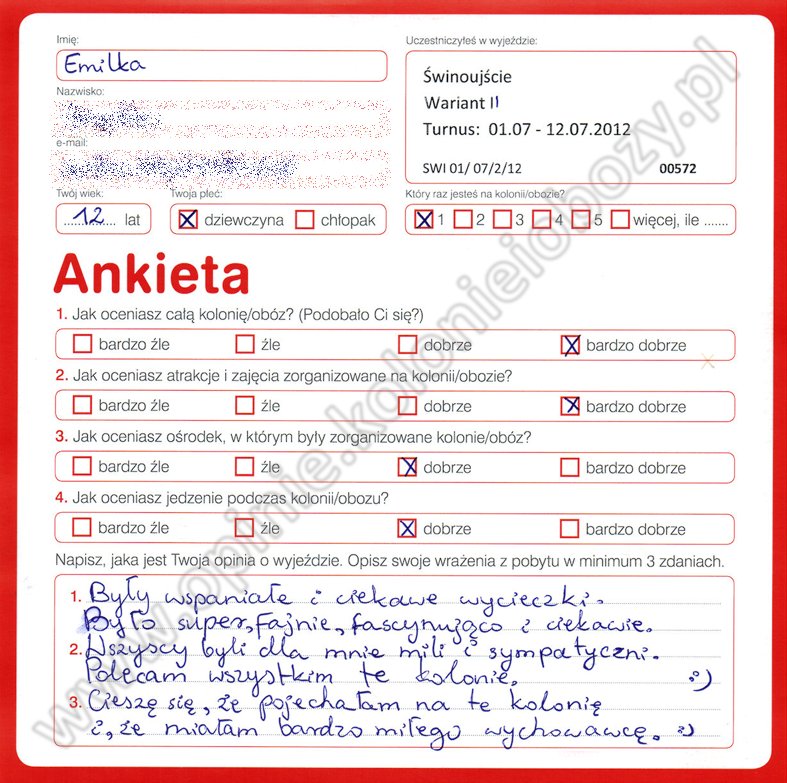 Imię:
Emilka
Nazwisko:
e-mail:
Twój wiek:
12 lat
Twoja płeć:
dziewczyna chłopak
Uczestniczyłeś w wyjeździe:
Świnoujście
Wariant II
Turnus: 01.07 - 12.07.2012
SWI 01/ 07/2/12 00572
Który raz jesteś na kolonii/obozie?
1 2 3 4 5 więcej, ile .......
Ankieta
1. Jak oceniasz całą kolonię/obóz? (Podobało Ci się?)
bardzo źle źle dobrze bardzo dobrze
2. Jak oceniasz atrakcje i zajęcia zorganizowane na kolonii/obozie?
bardzo źle źle dobrze bardzo dobrze
3. Jak oceniasz ośrodek, w którym były zorganizowane kolonie/obóz?
bardzo źle źle dobrze bardzo dobrze
4. Jak oceniasz jedzenie podczas kolonii/obozu?
bardzo źle źle dobrze bardzo dobrze
Napisz, jaka jest Twoja opinia o wyjeździe. Opisz swoje wrażenia z pobytu w minimum 3 zdaniach.
1. Były wspaniałe i ciekawe wycieczki.
Było super, fajnie, fascynująco i ciekawie.
2. Wszyscy byli dla mnie mili i sympatyczni.
Polecam wszystkim te kolonie. :)
3. Cieszę się, że pojechałam na te kolonię
i, że miałam bardzo miłego wychowawcę. :)
www.opinie.kolonieiobozy.pl